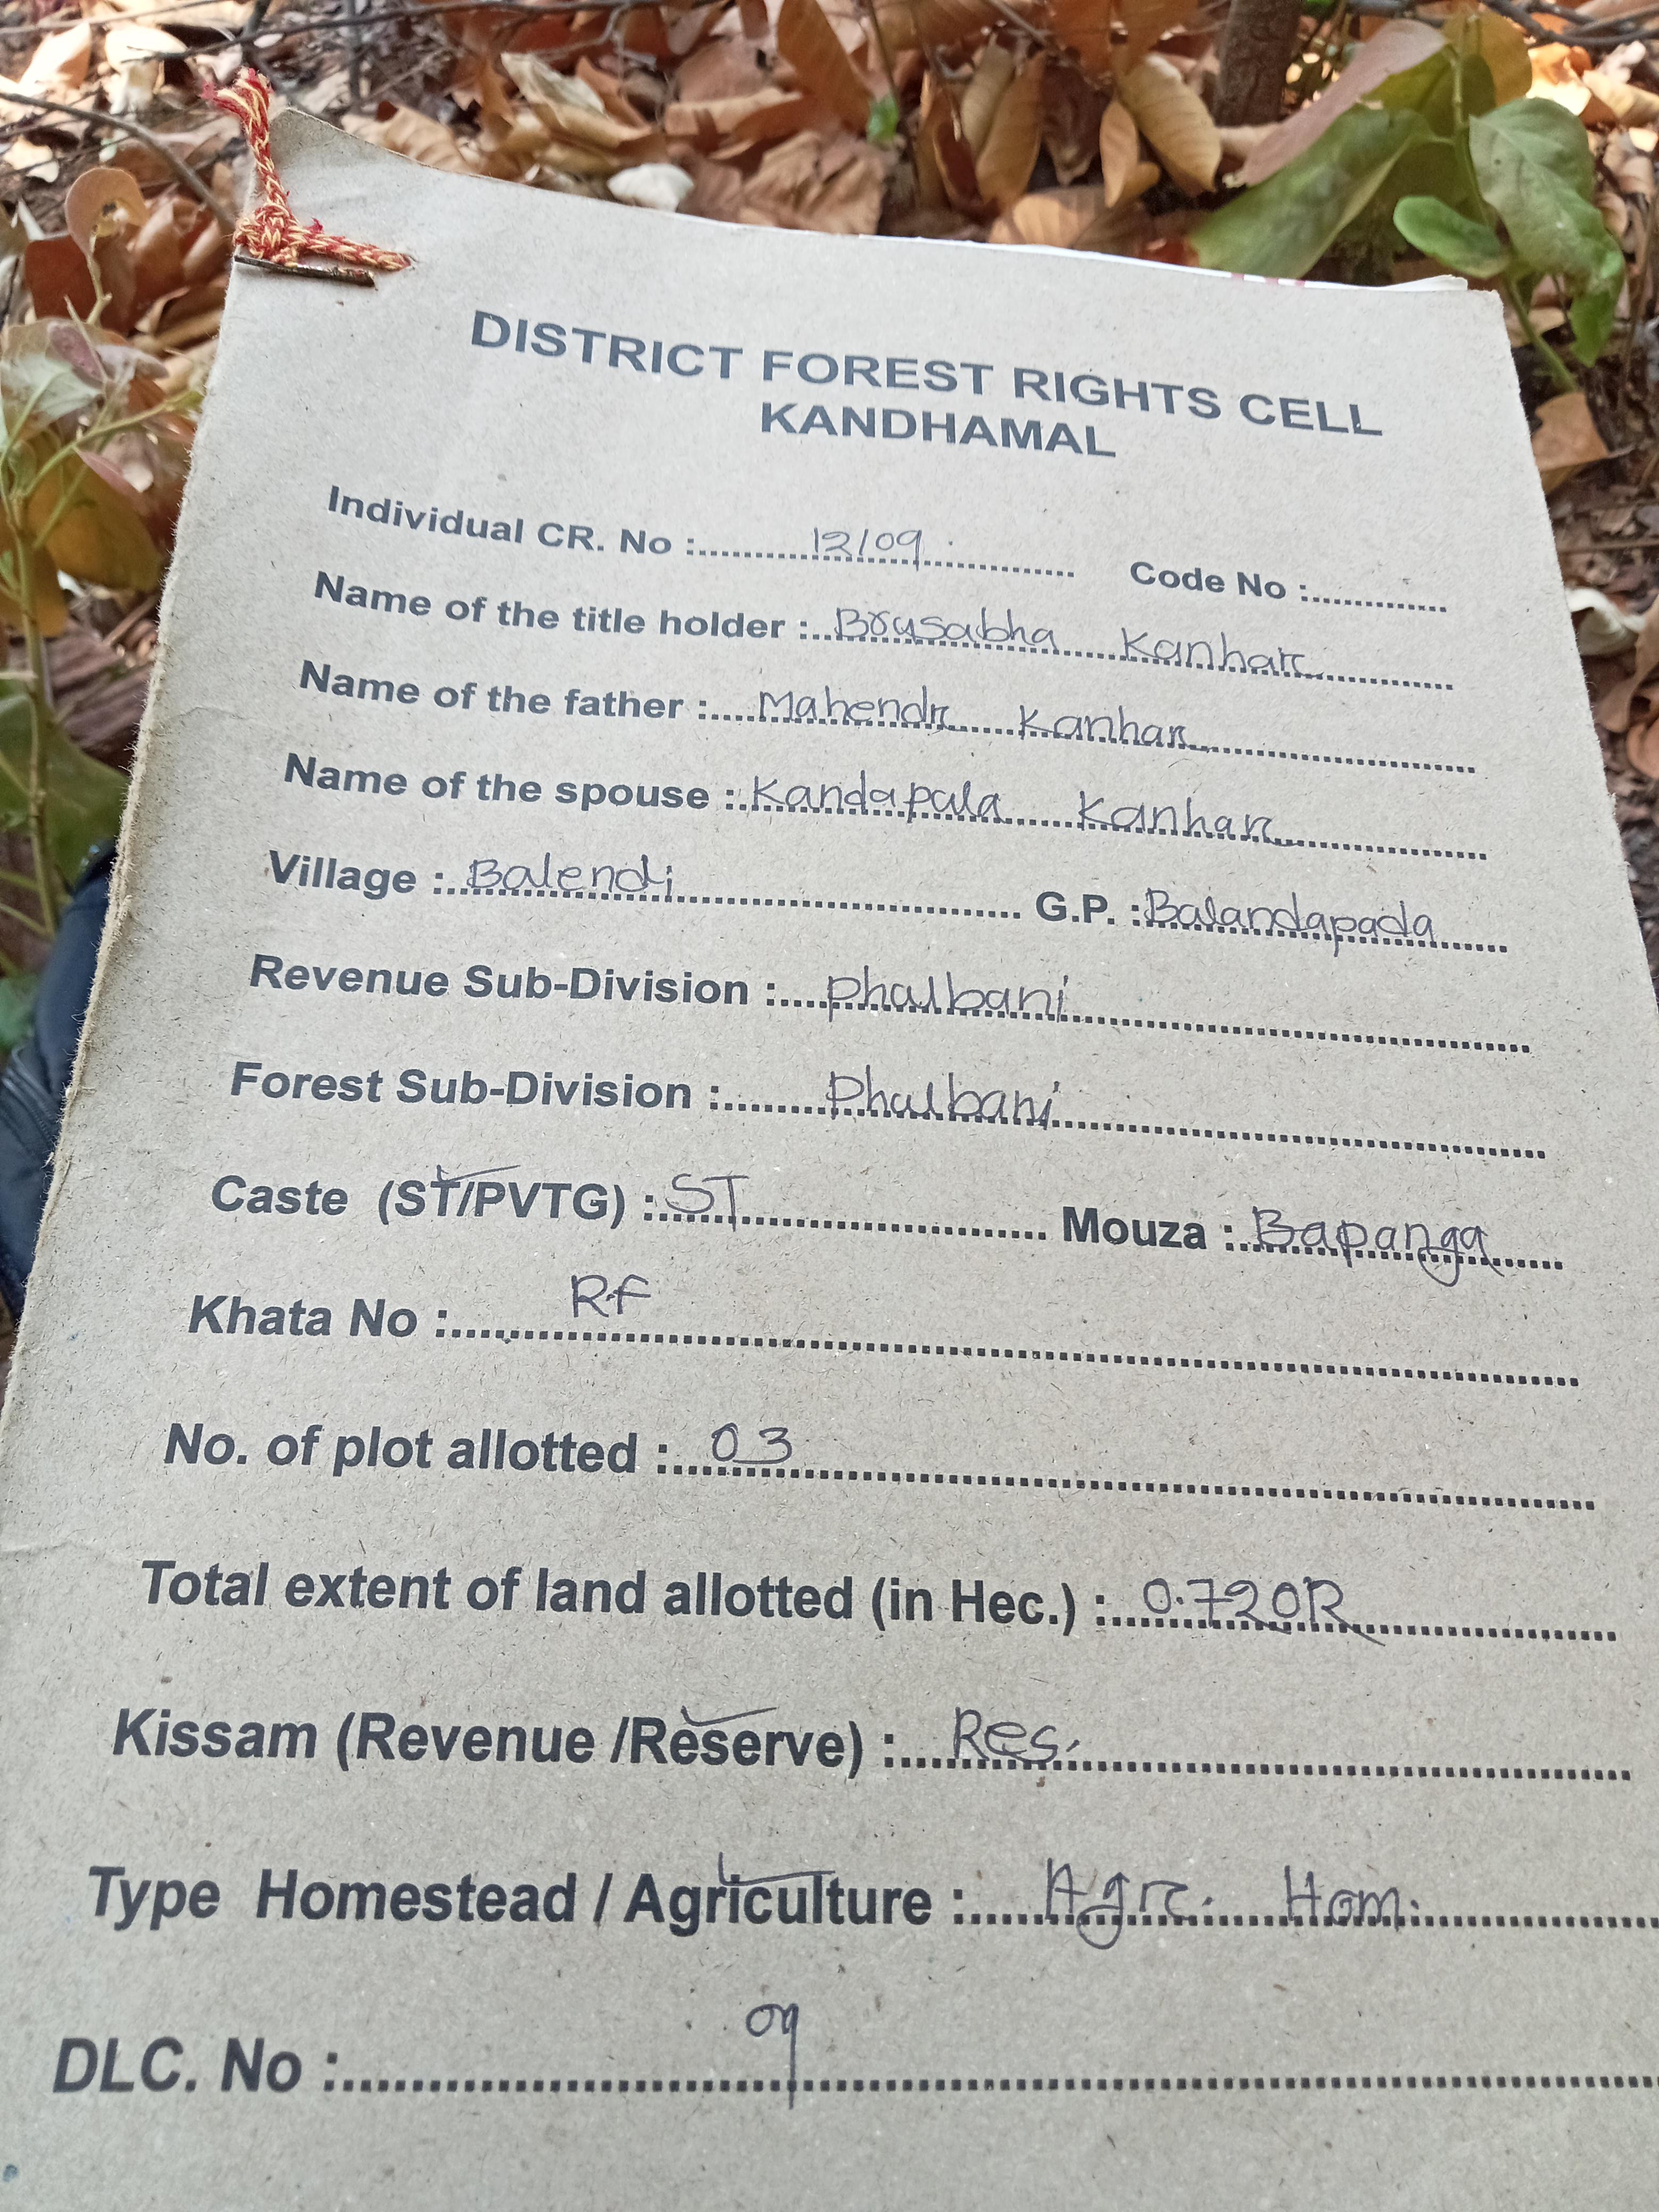 DISTRICT FOREST RIGHTS CELL
KANDHAMAL
Individual CR. No :.......... 12/09 .......... Code No :..........
Name of the title holder : Brusabha Kanhar
Name of the father : Mahendr Kanhar
Name of the spouse : Kandapula Kanhar
Village : Balendi G.P. : Balandapada
Revenue Sub-Division : Phulbani
Forest Sub-Division : Phulbani
Caste (ST/PVTG) : ST Mouza : Bapanga
Khata No : RF
No. of plot allotted : 03
Total extent of land allotted (in Hec.) : 0.720R
Kissam (Revenue /Reserve) : Res.
Type Homestead / Agriculture : Agr. Hom.
DLC. No : 09